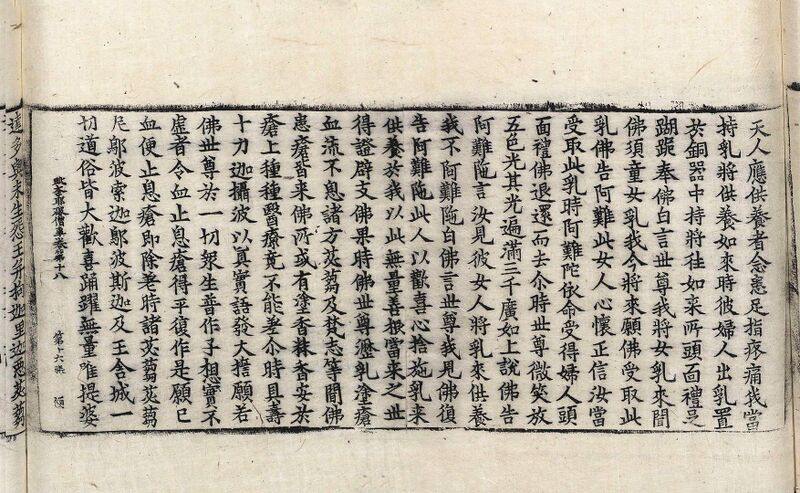 天人應供養者念患足指疼痛我當
持乳將供養如來時彼婦人出乳置
於銅器中持將往如來所頭面禮足
跪奉佛白言世尊我將女乳來聞
佛須童女乳我今將來願佛受取此
乳佛告阿難此女人心懷正信汝當
受取此乳時阿難陀依命受得婦人頭
面禮佛退還而去尒時世尊微笑放
五色光其光遍滿三千廣如上說佛告
阿難陁言汝見彼女人將乳來供養
我不阿難陁白佛言世尊我見佛復
告阿難陁此人以歡喜心捨施乳來
供養於我以此無量善根當來之世
得證辟支佛果時佛世尊瀝乳塗瘡
血流不息諸方苾蒭及梵志等聞佛
患瘡皆來佛所或有塗香粖香安於
瘡上種種醫療竟不能差尒時具壽
十力迦攝波以真實語發大擔願若
佛世尊於一切衆生普作子想實不
虛者令血止息瘡得平復作是願已
血便止息瘡即除差時諸苾蒭苾蒭
尼鄔波索迦鄔波斯迦及王舍城一
切道俗皆大歡喜踊躍無量唯提婆
卷第十八 第十六張
達多與未生怨王 迦里迦 苾蒭